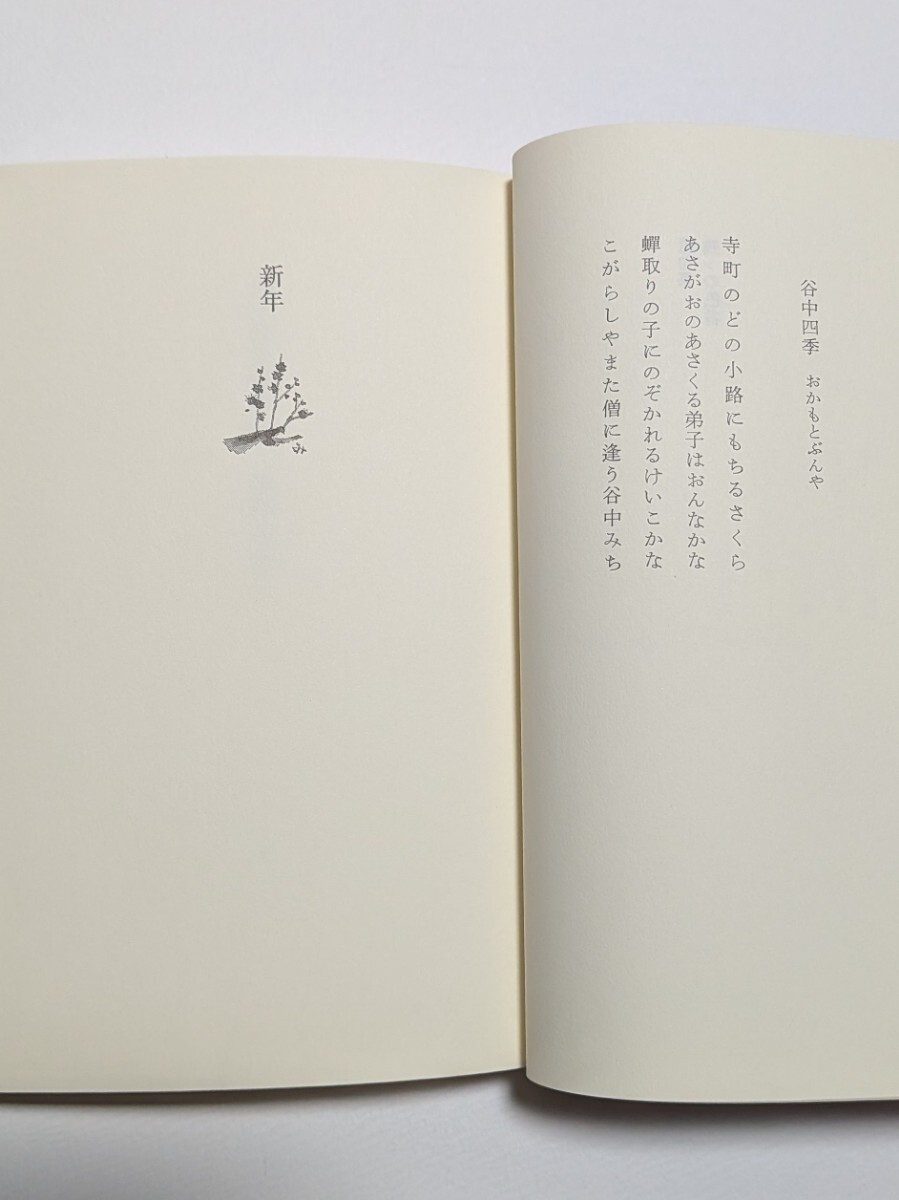 谷中四季　おかもとぶんや
寺町のどの小路にもちるさくら
あさがおのあさくる弟子はおんなかな
蟬取りの子にのぞかれるけいこかな
こがらしやまた僧に逢う谷中みち
新年
み